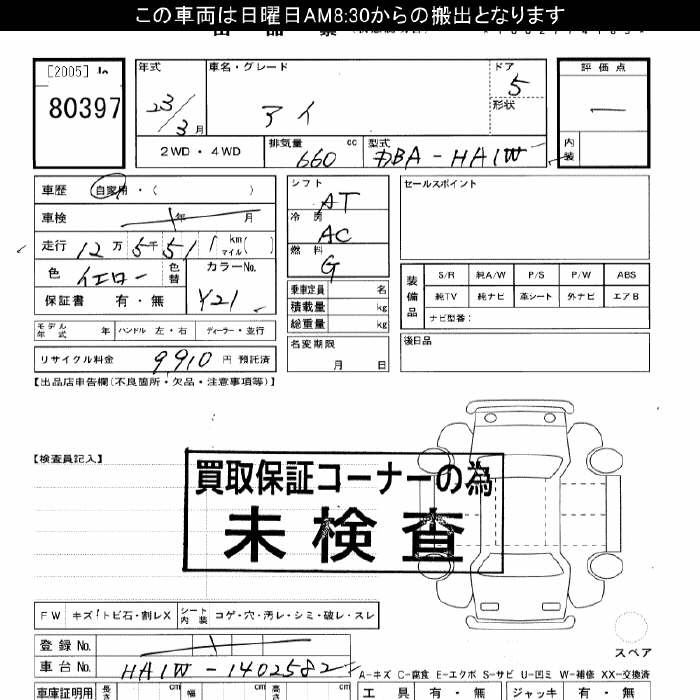 この車両は日曜日AM8:30からの搬出となります
[2005]
80397
年式 車名・グレード ドア 評価点
23/3月 アイ 5 形状 一
2WD・4WD 排気量 660 cc 型式 DBA-HA1W 内装
車歴 自家用・( )
車検 年 月
走行 12万 5千 51 km マイル( )
色 イエロー 色替 カラーNo.
保証書 有・無 Y21
シフト AT
冷房 AC
燃料 G
乗車定員 名
積載量 kg
総重量 kg
名変期限
月 日
セールスポイント
装備品 S/R 純A/W P/S P/W ABS
純TV 純ナビ 革シート 外ナビ エアB
ナビ型番:
後日品
モデル年式 年 ハンドル 左・右 ディーラー・並行
リサイクル料金 9910 円 預託済
【出品店申告欄(不良箇所・欠品・注意事項等)】
【検査員記入】
買取保証コーナーの為
未検査
FW キズ!トビ石・割レX シート内装 コゲ・穴・汚レ・シミ・破レ・スレ
登録No.
車台No. HA1W-1402582
スペア
A-キズ C-腐食 E-エクボ S-サビ U-凹ミ W-補修 XX-交換済
車庫証明用 長さ cm 幅 cm 高さ cm 工具 有・無 ジャッキ 有・無